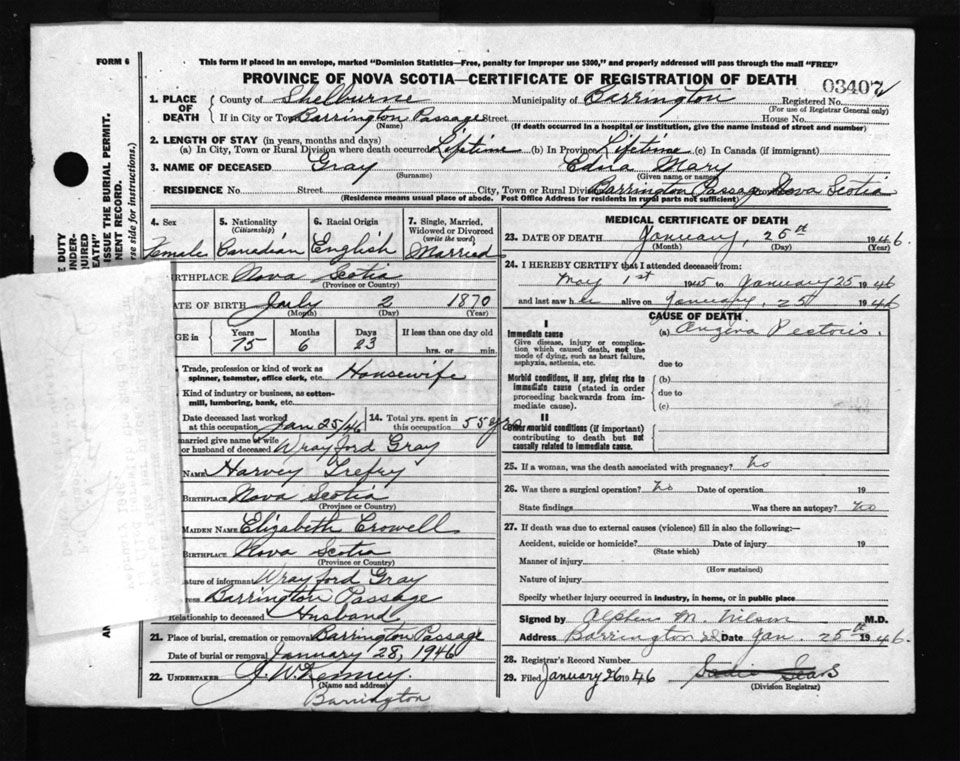 FORM 6
This form if placed in an envelope, marked "Dominion Statistics—Free, penalty for improper use $300," and properly addressed will pass through the mail "FREE"
PROVINCE OF NOVA SCOTIA—CERTIFICATE OF REGISTRATION OF DEATH
03407
1. PLACE OF DEATH County of Shelburne Municipality of Barrington Registered No.
(For use of Registrar General only)
If in City or Town Barrington Passage Street House No.
(Name) (If death occurred in a hospital or institution, give the name instead of street and number)
2. LENGTH OF STAY (in years, months and days)
(a) In City, Town or Rural Division where death occurred Lifetime (b) In Province Lifetime (c) In Canada (if immigrant)
3. NAME OF DECEASED Gray Edna Mary
(Surname) (Given name or names)
RESIDENCE No. Street City, Town or Rural Division Barrington Passage Nova Scotia
(Residence means usual place of abode. Post Office Address for residents in rural parts not sufficient)
4. Sex 5. Nationality (Citizenship) 6. Racial Origin 7. Single, Married, Widowed or Divorced (write the word)
Female Canadian English Married
BIRTHPLACE Nova Scotia
(Province or Country)
DATE OF BIRTH July 2 1870
(Month) (Day) (Year)
AGE in Years Months Days If less than one day old
75 6 23 hrs. or min.
Trade, profession or kind of work as spinner, teamster, office clerk, etc. Housewife
Kind of industry or business, as cotton-mill, lumbering, bank, etc.
Date deceased last worked at this occupation Jan 25/46 14. Total yrs. spent in this occupation 55 yrs
married give name of wife or husband of deceased Wrayford Gray
NAME Harvey Trefry
BIRTHPLACE Nova Scotia
(Province or Country)
MAIDEN NAME Elizabeth Crowell
BIRTHPLACE Nova Scotia
(Province or Country)
nature of informant Wrayford Gray
ess Barrington Passage
Relationship to deceased Husband
21. Place of burial, cremation or removal Barrington Passage
Date of burial or removal January 28, 1946
22. UNDERTAKER J. W. Kenney.
(Name and address)
Barrington
MEDICAL CERTIFICATE OF DEATH
23. DATE OF DEATH January, 25th 1946.
(Month) (Day) (Year)
24. I HEREBY CERTIFY that I attended deceased from:
May 1st 1945 to January 25 1946
and last saw her alive on January, 25 1946
CAUSE OF DEATH
I
Immediate cause (a) Angina Pectoris.
Give disease, injury or complication which caused death, not the mode of dying, such as heart failure, asphyxia, asthenia, etc. due to
Morbid conditions, if any, giving rise to immediate cause (stated in order proceeding backwards from immediate cause). (b)
due to
(c)
II
Other morbid conditions (if important) contributing to death but not causally related to immediate cause.
25. If a woman, was the death associated with pregnancy? No
26. Was there a surgical operation? No Date of operation 19
State findings Was there an autopsy? No
27. If death was due to external causes (violence) fill in also the following:—
Accident, suicide or homicide? Date of injury 19
(State which)
Manner of injury
(How sustained)
Nature of injury
Specify whether injury occurred in industry, in home, or in public place
Signed by M.D.
Address Barrington Date Jan. 25th 1946.
28. Registrar's Record Number
29. Filed January 26 1946 Sadie Sears
(Division Registrar)